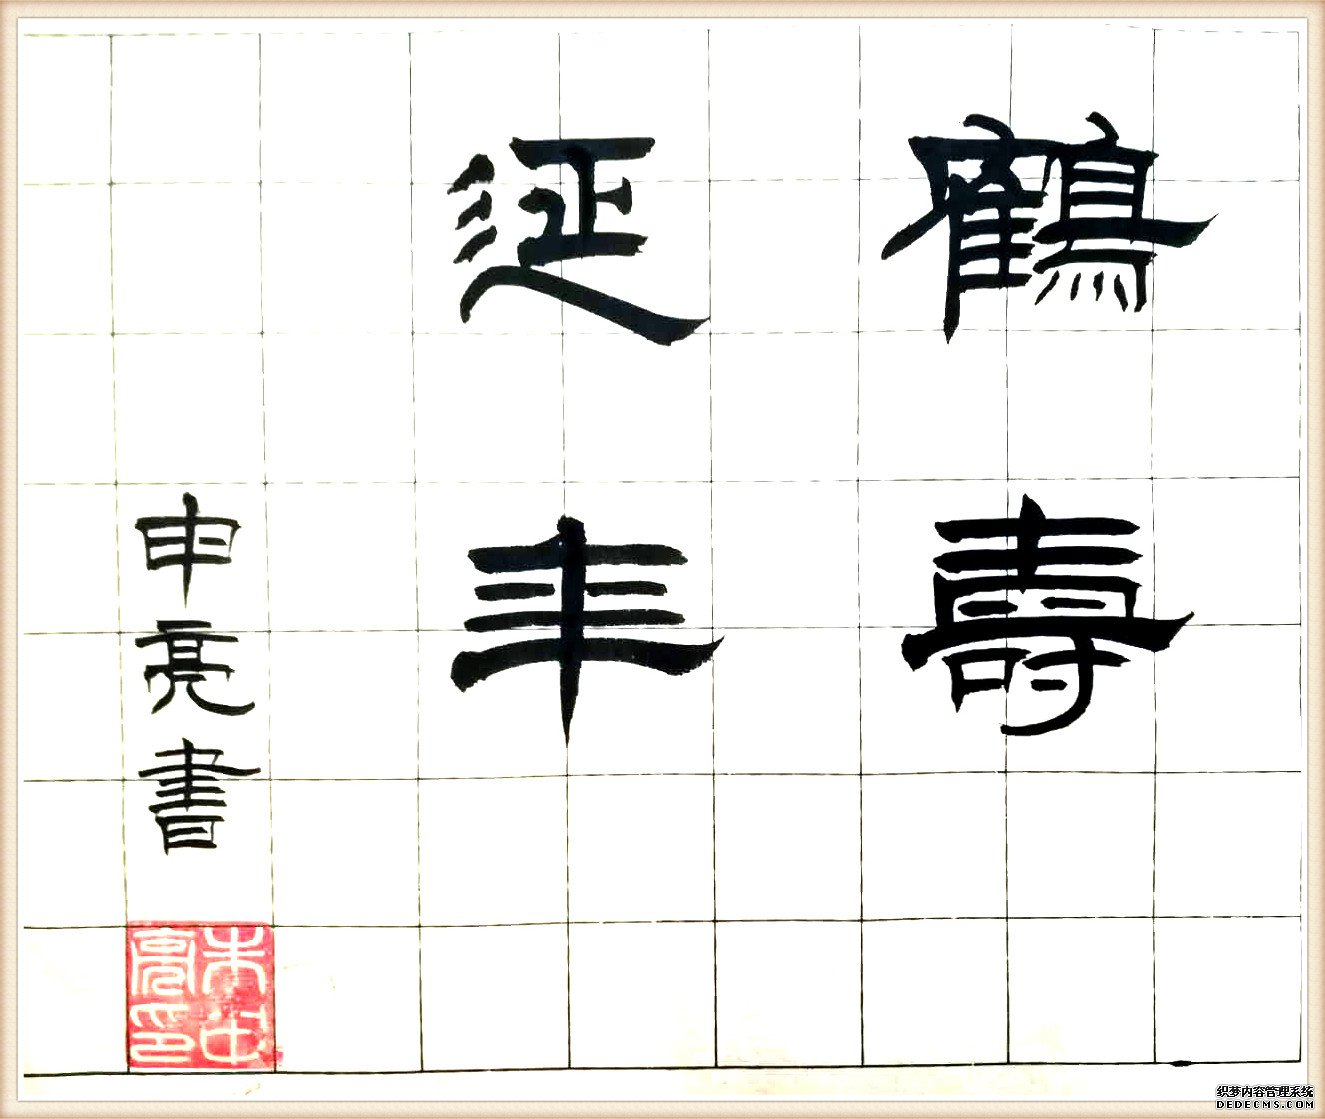 鶴壽
延年
申亮書
朱
亮印
织梦内容管理系统
DEDECMS.COM